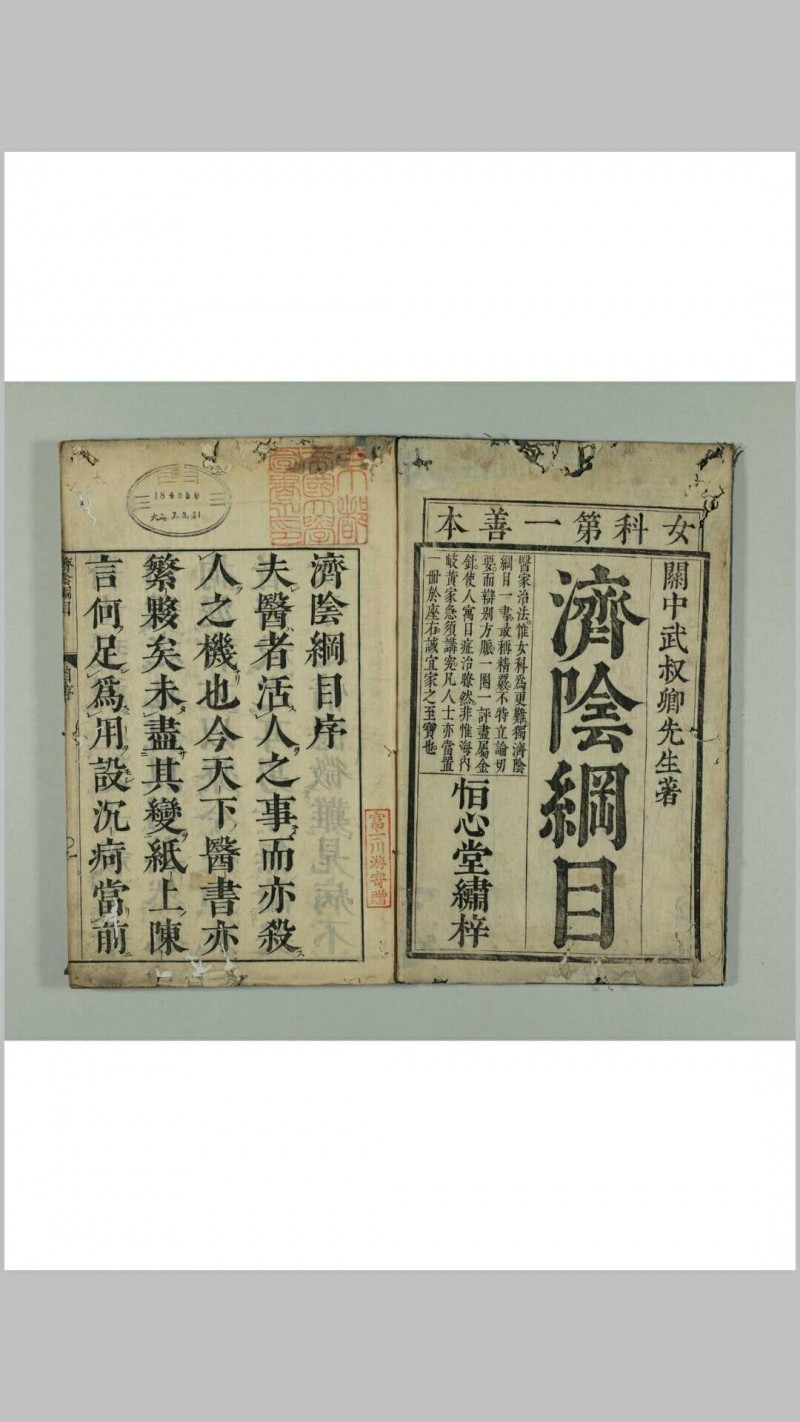 女科第一善本
關中武叔卿先生著
濟陰綱目
醫家治法惟女科為更難獨濟陰
綱目一書最稱精覈不特立論切
要而辯别方脈一圏一評盡屬金
針使人寓目症治瞭然非惟海内
岐黃家急須講究凡人士亦當置
一冊於座右誠宜家之至寶也
恒心堂繡梓
京都
帝國大學
圖書之印
184650
大正7.3.31
富士川游寄贈
濟陰綱目序
夫醫者活人之事而亦殺
人之機也今天下醫書亦
繁夥矣未盡其變紙上陳
言何足為用設沉疴當前
濟陰綱目